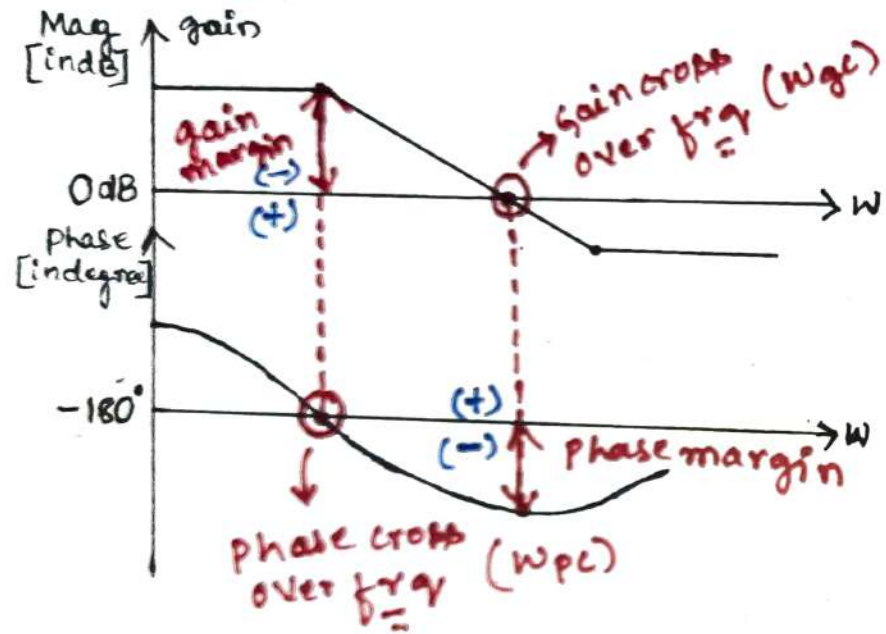 Mag
[in dB]
gain
gain
margin
(-)
0dB
(+)
Gain cross
over frq (Wgc)
W
Phase
[indegree]
-180°
(+)
(-)
W
Phase margin
Phase cross
over frq (Wpc)